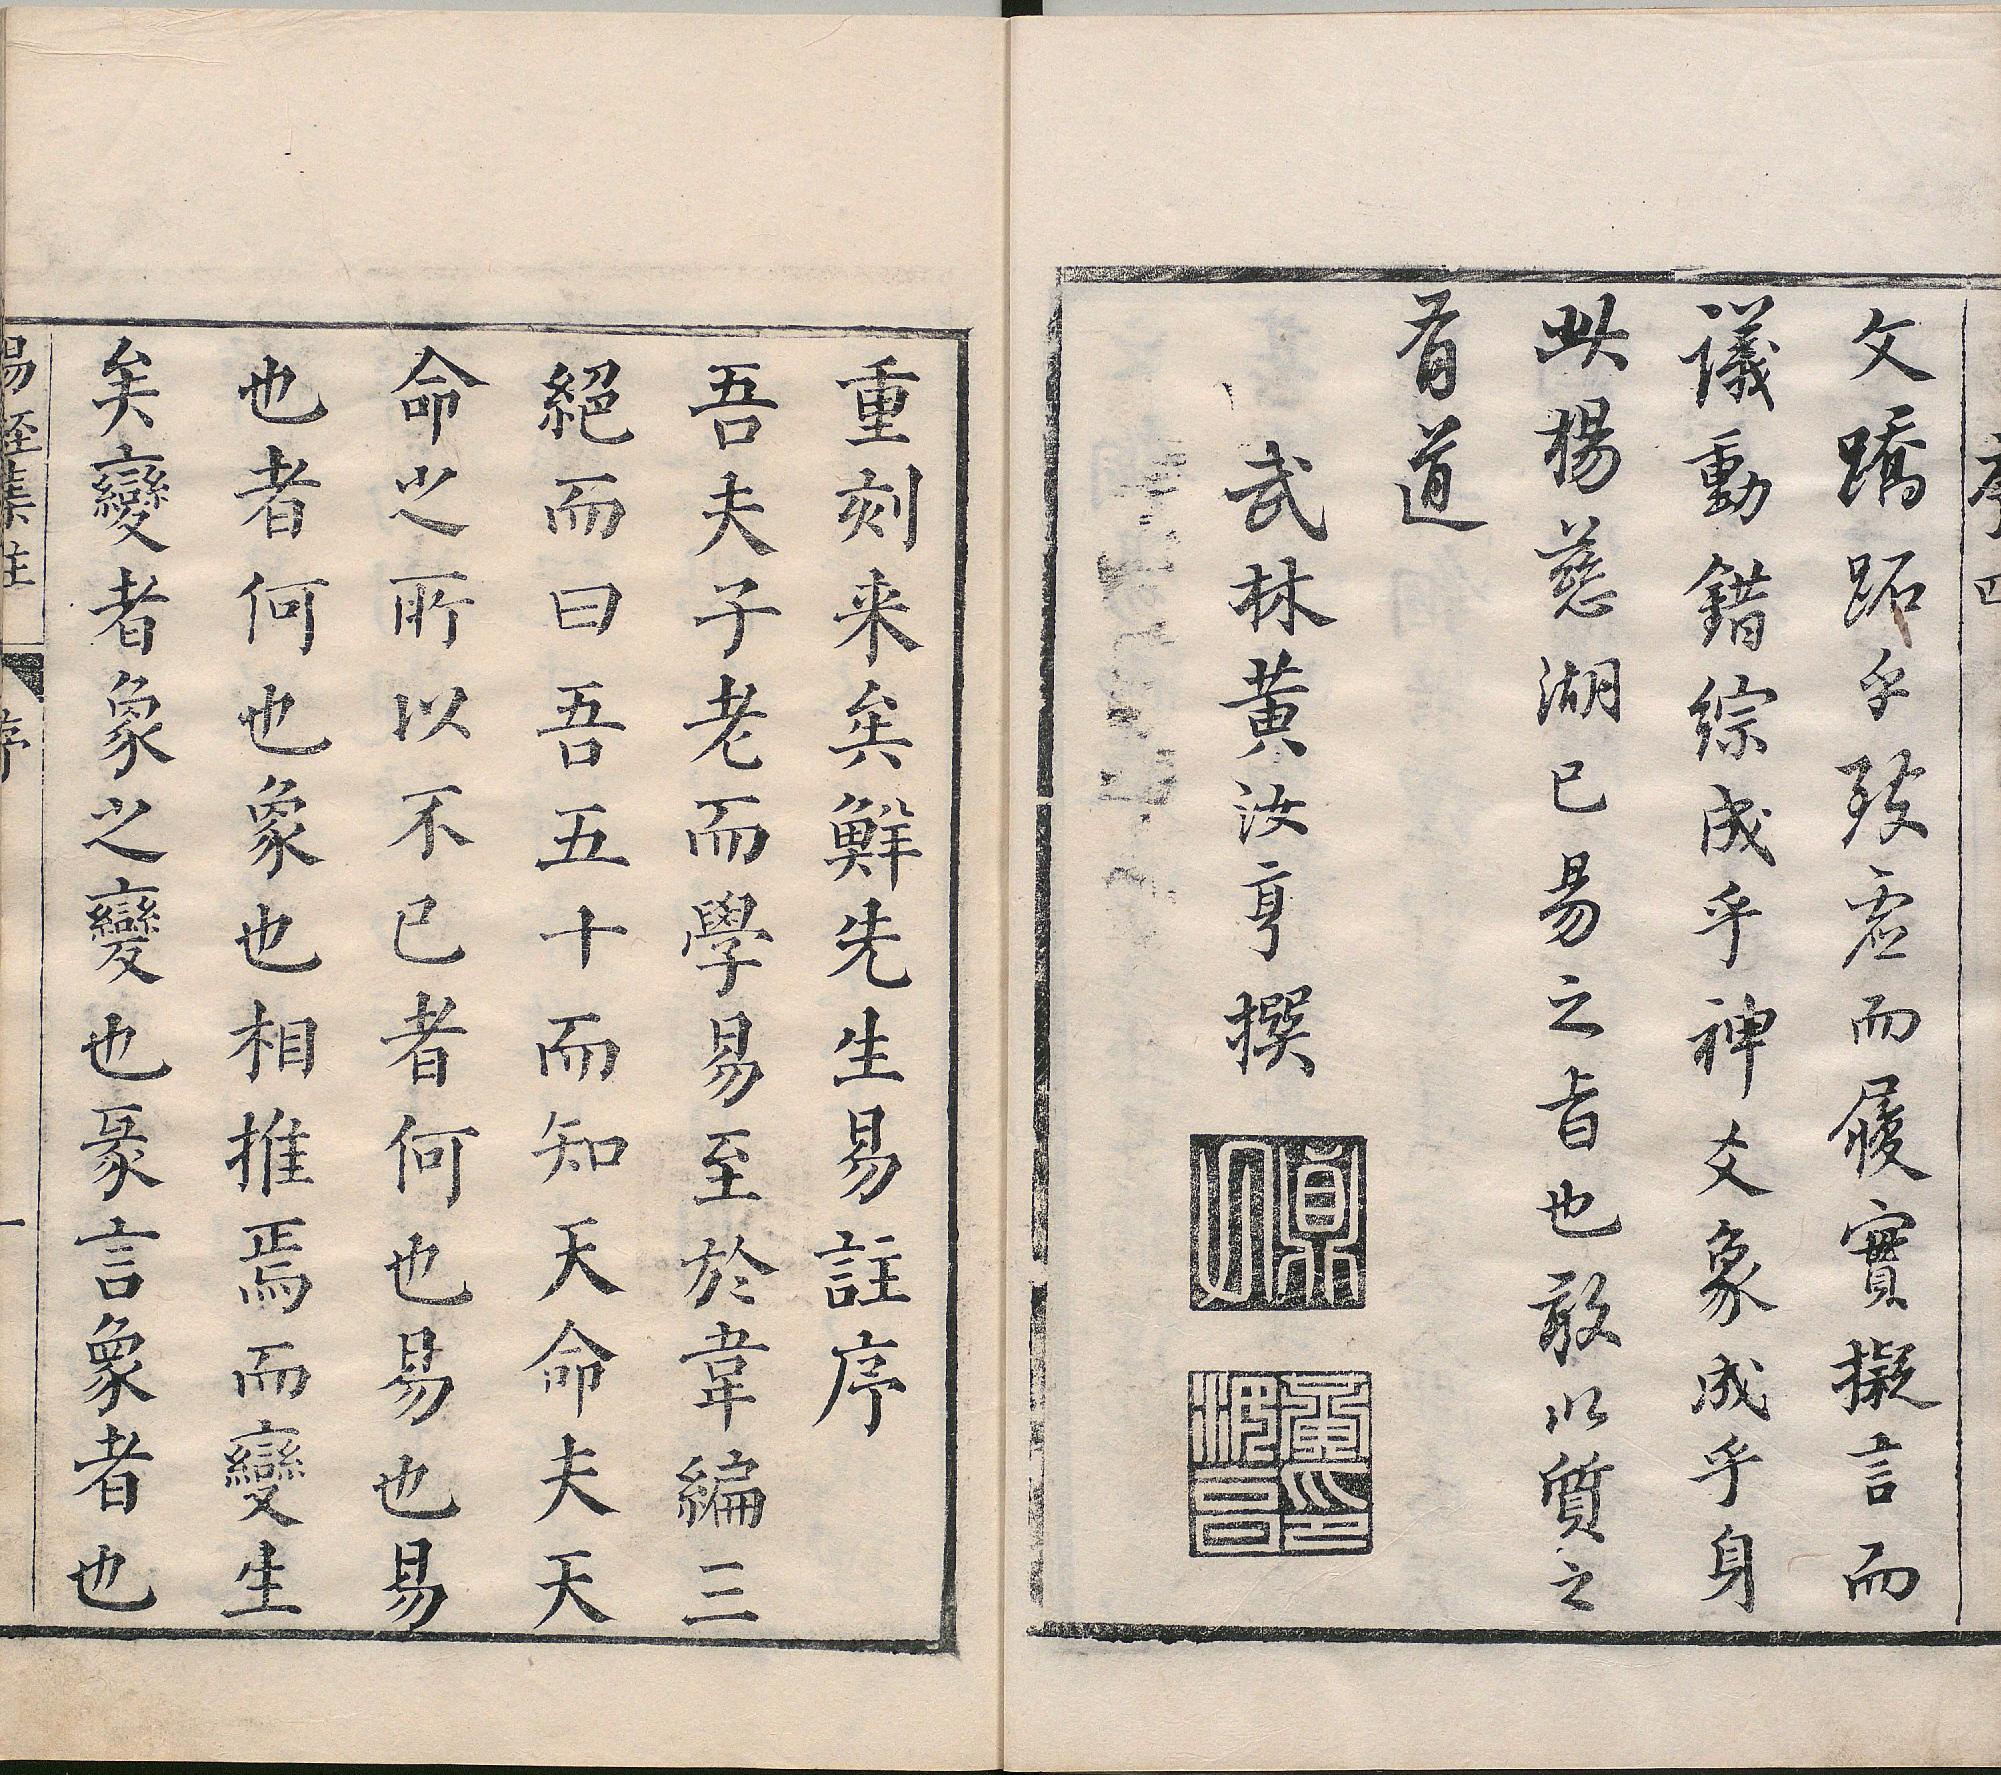 序四
文蹻跖乎致虛而履實擬言而
議動錯綜成乎神爻象成乎身
此楊慈湖已易之旨也敢以質之
有道
武林黃汝亨撰
貞父
黃汝亨印
重刻来矣鮮先生易註序
吾夫子老而學易至於韋編三
絕而曰吾五十而知天命夫天
命之所以不已者何也易也易
也者何也象也相推焉而變生
矣變者象之變也彖言象者也
易經集註 序 一